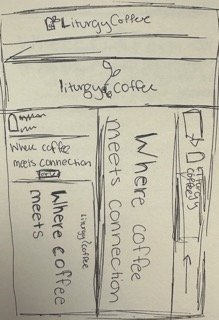 LiturgyCoffee
liturgy coffee
Where coffee
meets connection
Where coffee
meets
Liturgy/coffee
Where coffee
meets connection
Liturgy
coffee